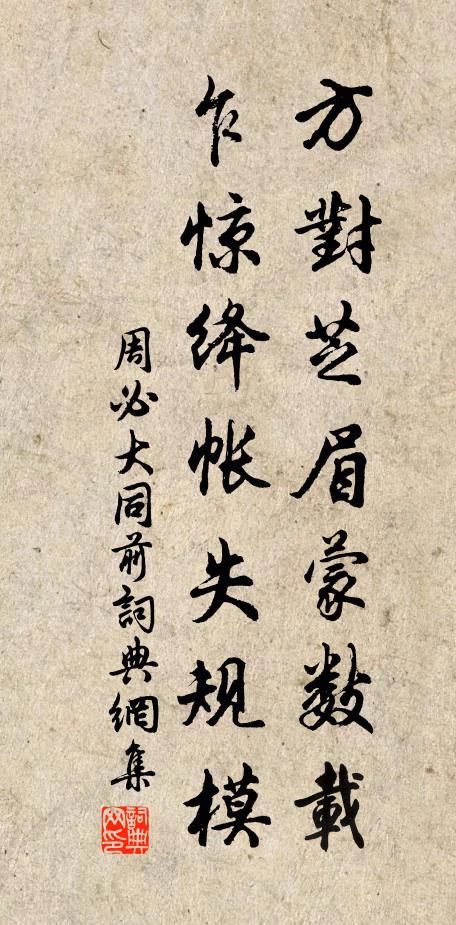 方對芝眉蒙数載
乍惊绛帐失规模
周必大同前詞典網集
詞典网印